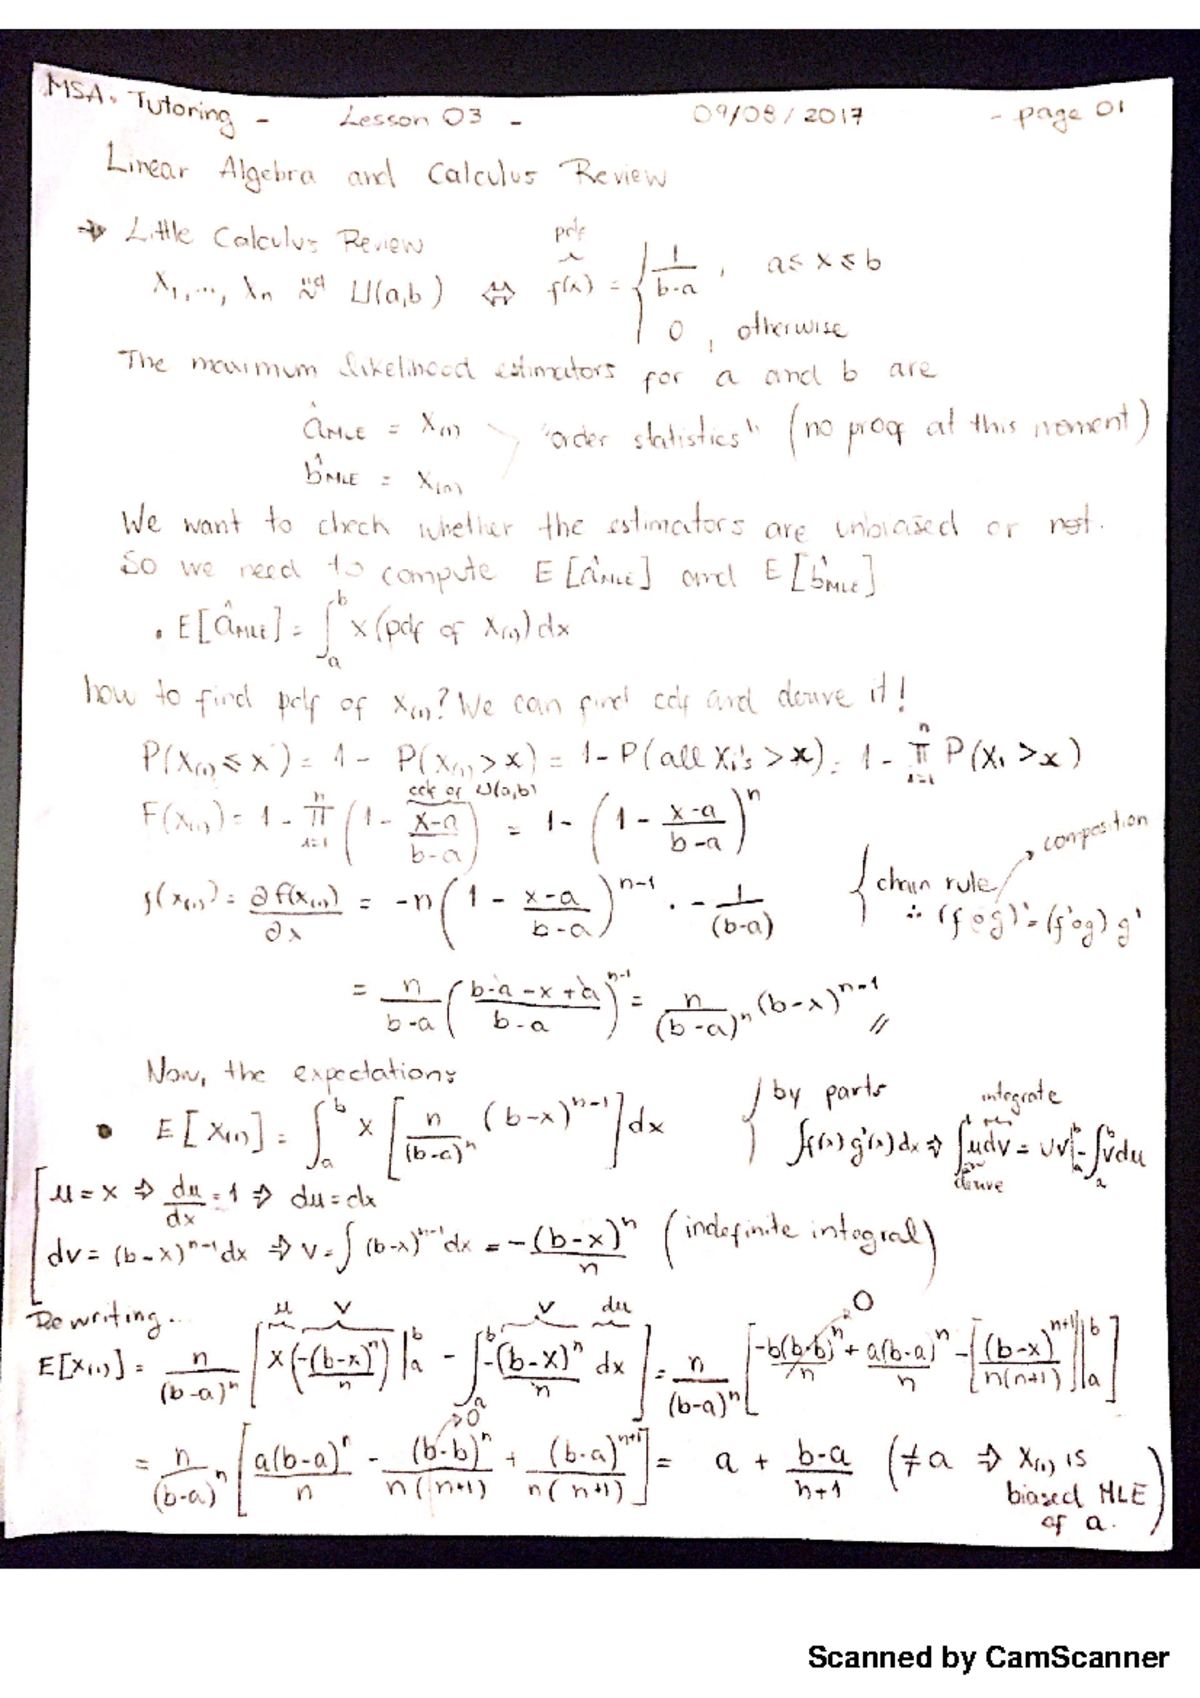 MSA. Tutoring - Lesson 03 - 09/08/2017 - page 01
Linear Algebra and Calculus Review
→ Little Calculus Review
X₁,..., Xₙ iid~ U(a,b) ⇔ f(x) = { 1/(b-a), a≤x≤b
pdf
0, otherwise
The maximum likelihood estimators for a and b are
âMLE = X(1)
"order statistics" (no proof at this moment)
b̂MLE = X(n)
We want to check whether the estimators are unbiased or not.
So we need to compute E[âMLE] and E[b̂MLE]
• E[âMLE] = ∫ₐᵇ x (pdf of X(1)) dx
how to find pdf of X(1)? We can find cdf and derive it!
P(X(1) ≤ x) = 1 - P(X(1) > x) = 1 - P(all Xi's > x) = 1 - π_{i=1}^n P(X₁ > x)
cdf of U(a,b)
F(X(1)) = 1 - π_{i=1}^n (1 - (x-a)/(b-a)) = 1 - (1 - (x-a)/(b-a))^n
composition
f(x(1)) = ∂f(x(1))/∂x = -n (1 - (x-a)/(b-a))^{n-1} · - 1/(b-a) { chain rule
∴ (f∘g)' = (f'∘g) g'
= n/(b-a) ((b-a-x+a)/(b-a))^{n-1} = n/(b-a)^n (b-x)^{n-1} //
Now, the expectations
• E[X(1)] = ∫ₐᵇ x [n/(b-a)^n (b-x)^{n-1}] dx { by parts
integrate
∫f(x)g'(x)dx ⇒ ∫udv = uv|ₐᵇ - ∫ₐᵇ vdu
derive
u = x ⇒ du/dx = 1 ⇒ du = dx
dv = (b-x)^{n-1} dx ⇒ v = ∫(b-x)^{n-1} dx = -(b-x)^n/n (indefinite integral)
Rewriting...
u v v du 0
E[X(1)] = n/(b-a)^n [x(-(b-x)^n/n)|ₐᵇ - ∫ₐᵇ -(b-x)^n/n dx] = n/(b-a)^n [-b(b-b)^n/n + a(b-a)^n/n - [(b-x)^{n+1}/n(n+1)]|ₐᵇ]
0
= n/(b-a)^n [a(b-a)^n/n - (b-b)^n/n(n+1) + (b-a)^{n+1}/n(n+1)] = a + (b-a)/(n+1) (≠ a ⇒ X(1) is
biased MLE
of a.)
Scanned by CamScanner